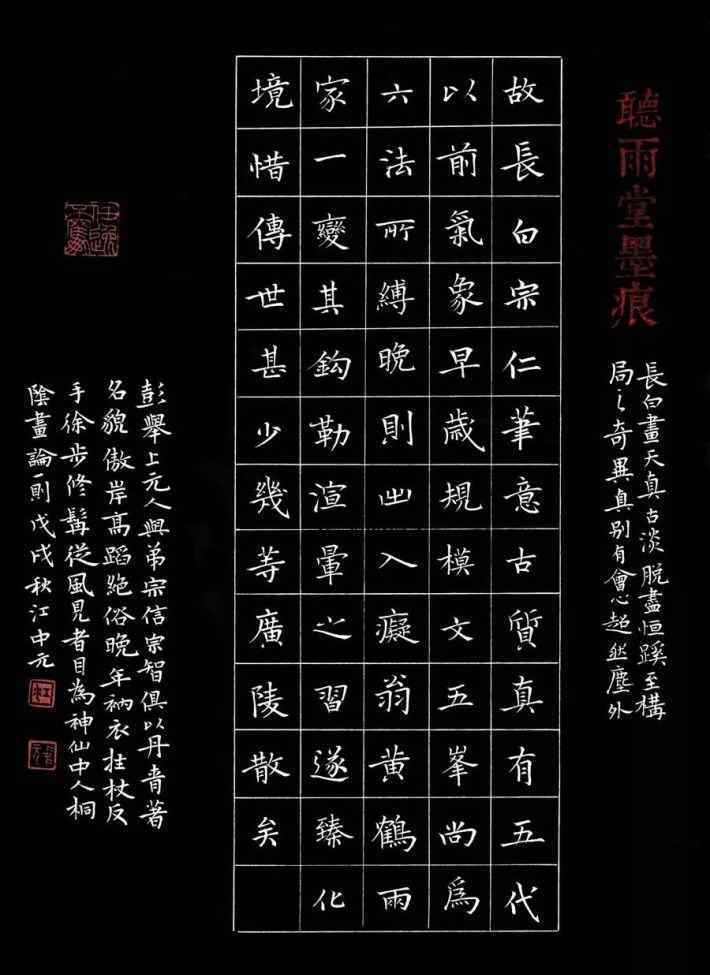 聽雨堂墨痕
長白畫天真古淡脫盡恒蹊至構
局之奇異真别有會心超然塵外
故長白宗仁筆意古質真有五代
以前氣象早歲規模文五峯尚爲
六法所縛晚則出入癡翁黃鶴兩
家一變其鈎勒渲暈之習遂臻化
境惜傳世甚少幾等廣陵散矣
彭舉上元人與弟宗信宗智俱以丹青著
名貌傲岸高蹈絕俗晚年衲衣拄杖反
手徐步修髯從風見者目為神仙中人桐
陰畫論一則戊戌秋江中元